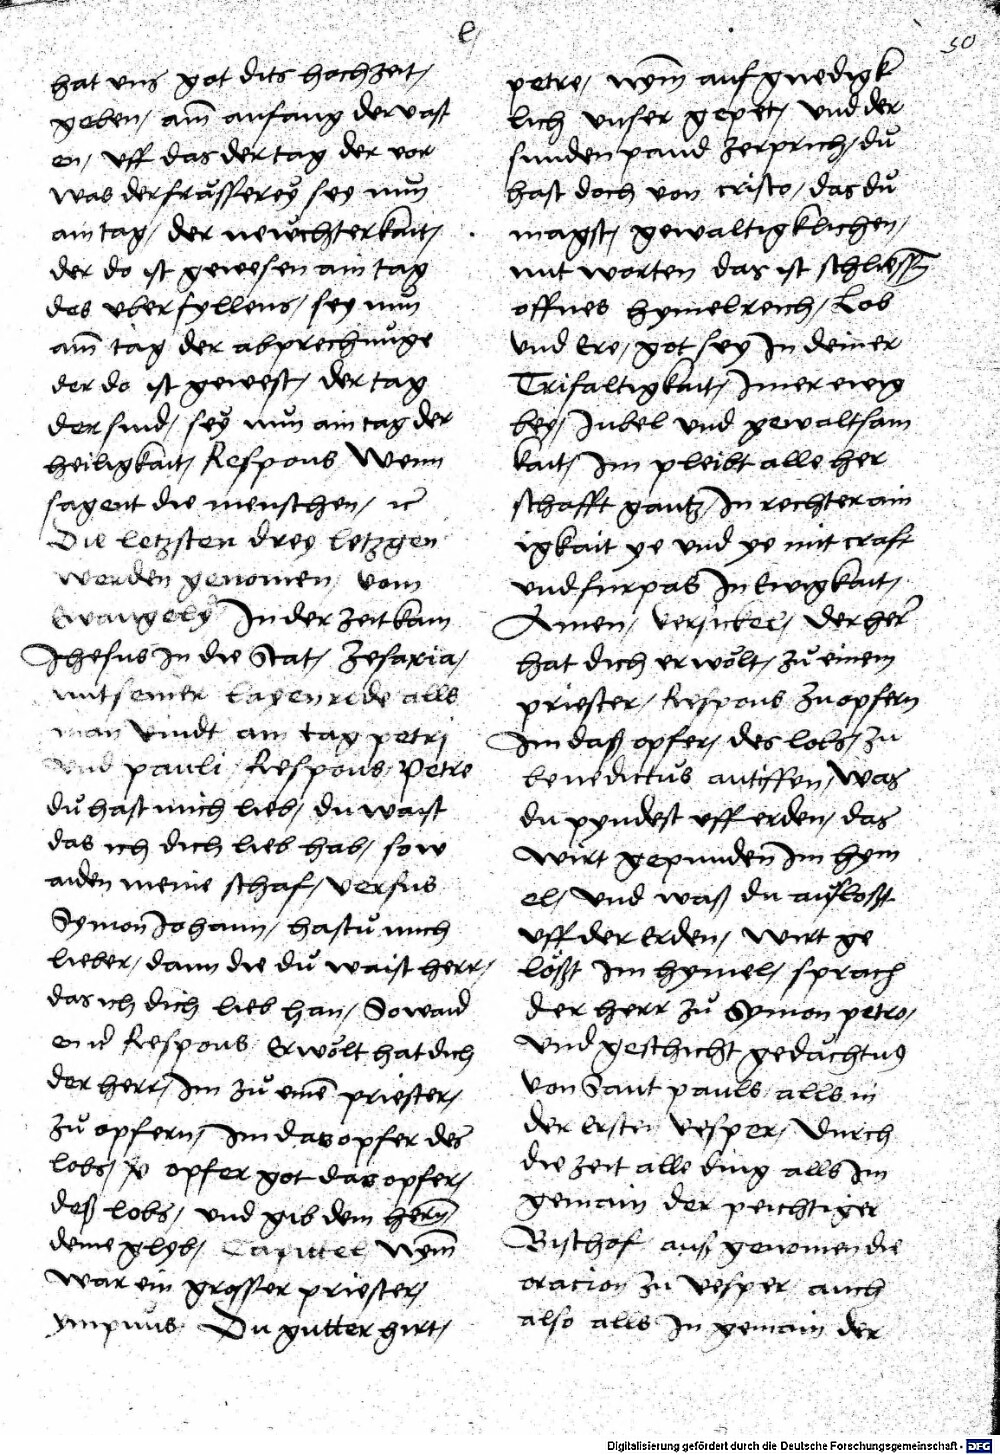 l
50
hat uns got dits hochzeit /
geben / am̄ anfang der vast
en / uff das der tag der vor
was der frůsserey sey nun
ain tag / der newchterkait /
der do ist gewesen ain tag
des uberfyllens / sey nun
am̄ tag der abprechnůge
der do ist gewest / der tag
der sund / sey nun ain tag der
heiligkait / Respons Wenn
sagent die menschen /
Die letzsten drey letzgen
werden genomen / vom
Ewangely In der zeit kam
Jhesus In die Stat / Zesaria /
mit seiner layenrede alls
man vindt am tag petri
und pauli / Respons Petre
dů hast mich lieb / du waist
das ich dich lieb hab / so w
aiden meine schaf / versus
Symon Johann / hastů mich
lieber / dann die dů waist herr /
das ich dich lieb han / So waid
en Respons Erwölt hat dich
der herr / Im zů einē priester /
zů opfern / Im das opfer des
lobs / opfer got das opfer /
deß lobs / und gib dem hern
deine glyb / Capittel Nym̄
war ein grosser priester /
ympnus Du gutter hirt /
petre / Nym̄ auf gnedigk
lich unser gepet / und der
sunden pand zerprich / dů
hast doch von cristo / das dů
magst / gewaltigklichen /
mit worten das ist schliessn
offnes hymelreich / Lob
und Ere / got sey In deiner
Trifaltigkait / Imer ewig
bey / Jubel und gewaltsam
kait / Im pleibt alle her
schafft gantz / In rechter ain
igkait ye und ye mit craft
und furpas In Ewigkait /
Amen / versickel / Der her
hat dich erwölt / zů einem
priester / Respons Zu opfern
Im daß opfer / des lobs / zu
benedictus antiffen / Was
du pyndest uff erden / das
wirt gepunden Im hym
el / Und waß du aufloßt
uff der Erden / Wirt ge
lößt Im hymel / sprach
der herr zů Symon petro /
Und geschicht gedächtnus
von Sant pauls alls in
der Ersten Vesper / Durch
die zeit alle ding alls Im
gemain der peichtiger
Bischof auß genomen die
oracion zu Vesper auch
also alls In gemain der
Digitalisierung gefördert durch die Deutsche Forschungsgemeinschaft - DFG